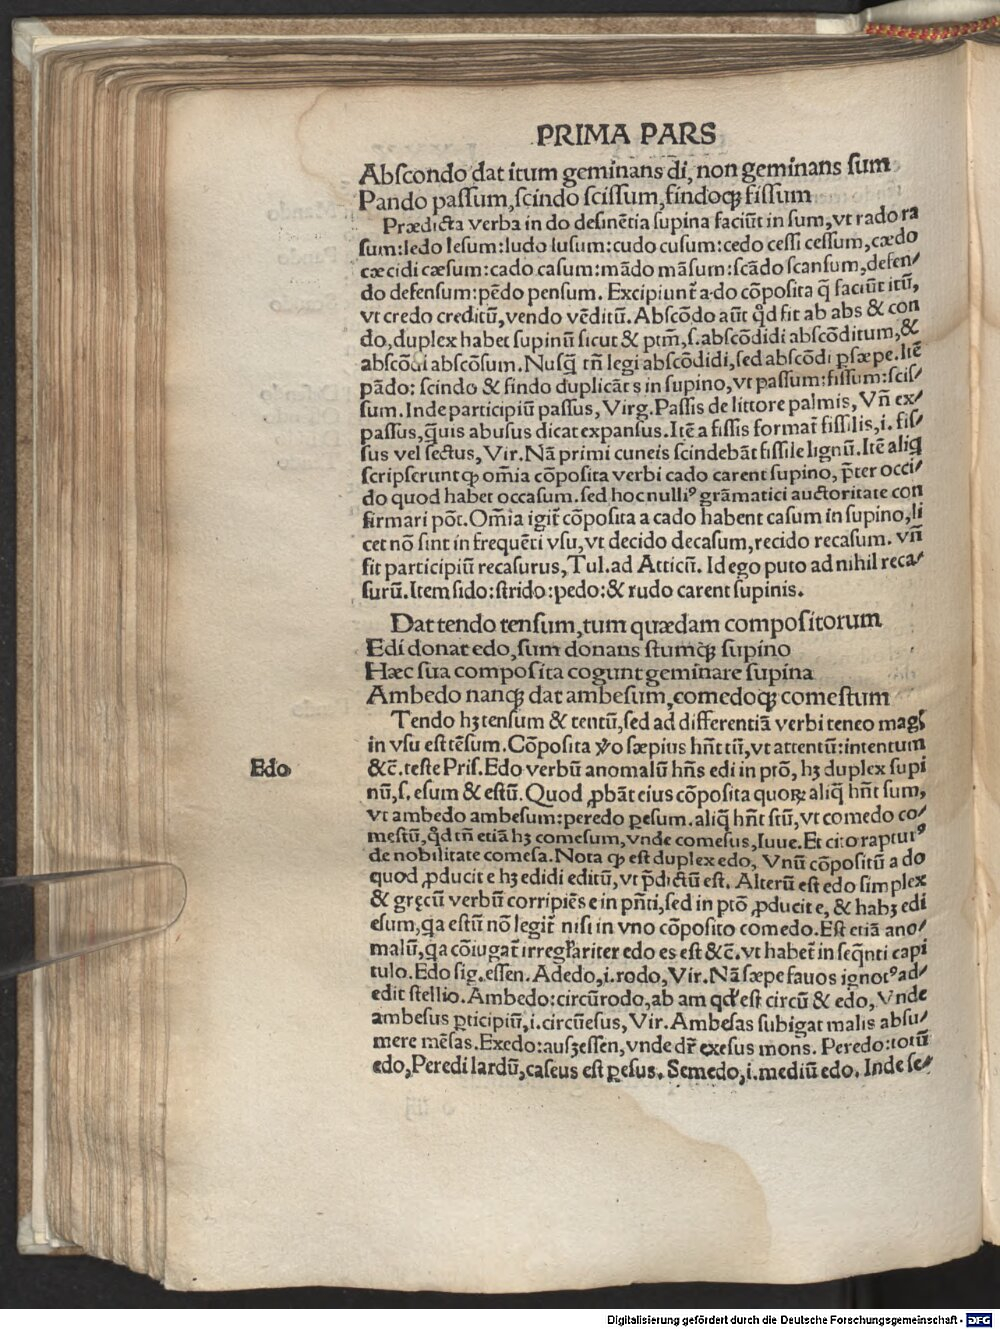 PRIMA PARS
Abscondo dat itum geminans di, non geminans sum
Pando passum, scindo scissum, findoqꝫ fissum
Prædicta verba in do desinētia supina faciūt in sum, vt rado ra
sum: ledo lesum: ludo lusum: cudo cusum: cedo cessi cessum, cædo
cæcidi cæsum: cado casum: mādo māsum: scādo scansum, defen/
do defensum: pēdo pensum. Excipiunt̃ a do cōposita q̃ faciūt itū,
vt credo creditū, vendo vēditū. Abscōdo aūt qd̓ fit ab abs & con
do, duplex habet supinū sicut & ptm̄, s. abscōdidi abscōditum, &
abscōdi abscōsum. Nusq̃ tn̄ legi abscōdidi, sed abscōdi p̱sæpe. Itē
pādo: scindo & findo duplicāt s in supino, vt passum: fissum: scis/
sum. Inde participiū passus, Virg. Passis de littore palmis, Vn̄ ex/
passus, q̃uis abusus dicat expansus. Itē a fissis format̃ fissilis, i. fis/
sus vel sectus, Vir. Nā primi cuneis scindebāt fissile lignū. Itē aliq̃
scripserunt ꝙ om̄ia cōposita verbi cado carent supino, p̄ter occi/
do quod habet occasum. sed hoc nulliꝰ grāmatici auctoritate con
firmari pōt. Om̄ia igit̃ cōposita a cado habent casum in supino, li
cet nō sint in frequēti vsu, vt decido decasum, recido recasum. vn̄
fit participiū recasurus, Tul. ad Atticū. Id ego puto ad nihil reca/
surū. Item sido: strido: pedo: & rudo carent supinis.
Dat tendo tensum, tum quædam compositorum
Edi donat edo, sum donans stumqꝫ supino
Hæc sua composita cogunt geminare supina
Ambedo nanqꝫ dat ambesum, comedoqꝫ comestum
Tendo hꝫ tensum & tentū, sed ad differentiā verbi teneo magꝭ
in vsu est tēsum. Cōposita ꝟo sæpius hn̄t tū, vt attentū: intentum
Edo
&c̄. teste Pris. Edo verbū anomalū hn̄s edi in ptō, hꝫ duplex supi
nū, s. esum & estū. Quod ꝓbāt eius cōposita quoꝝ aliq̃ hn̄t sum,
vt ambedo ambesum: peredo ꝑesum. aliq̃ hn̄t stū, vt comedo co/
mestū, qd̓ tn̄ etiā hꝫ comesum, vnde comesus, Iuue. Et cito rapturꝰ
de nobilitate comesa. Nota ꝙ est duplex edo, Vnū cōpositū a do
quod ꝓducit e hꝫ edidi editū, vt p̄dictū est. Alterū est edo simplex
& gręcū verbū corripiēs e in pn̄ti, sed in ptō ꝓducit e, & habꝫ edi
esum, qa estū nō legit̃ nisi in vno cōposito comedo. Est etiā ano/
malū, qa cōiugat̃ irregl̓ariter edo es est &c̄. vt habet̃ in seqn̄ti capi
tulo. Edo sig. essen. Adedo, i. rodo, Vir. Nā sæpe fauos ignotꝰ ad/
edit stellio. Ambedo: circūrodo, ab am qd̓ est circū & edo, Vnde
ambesus ꝑticipiū, i. circūesus, Vir. Ambesas subigat malis absu/
mere mēsas. Exedo: auszessen, vnde dr̄ exesus mons. Peredo: totū
edo, Peredi lardū, caseus est ꝑesus. Semedo, i. mediū edo. Inde se/
Digitalisierung gefördert durch die Deutsche Forschungsgemeinschaft - DFG